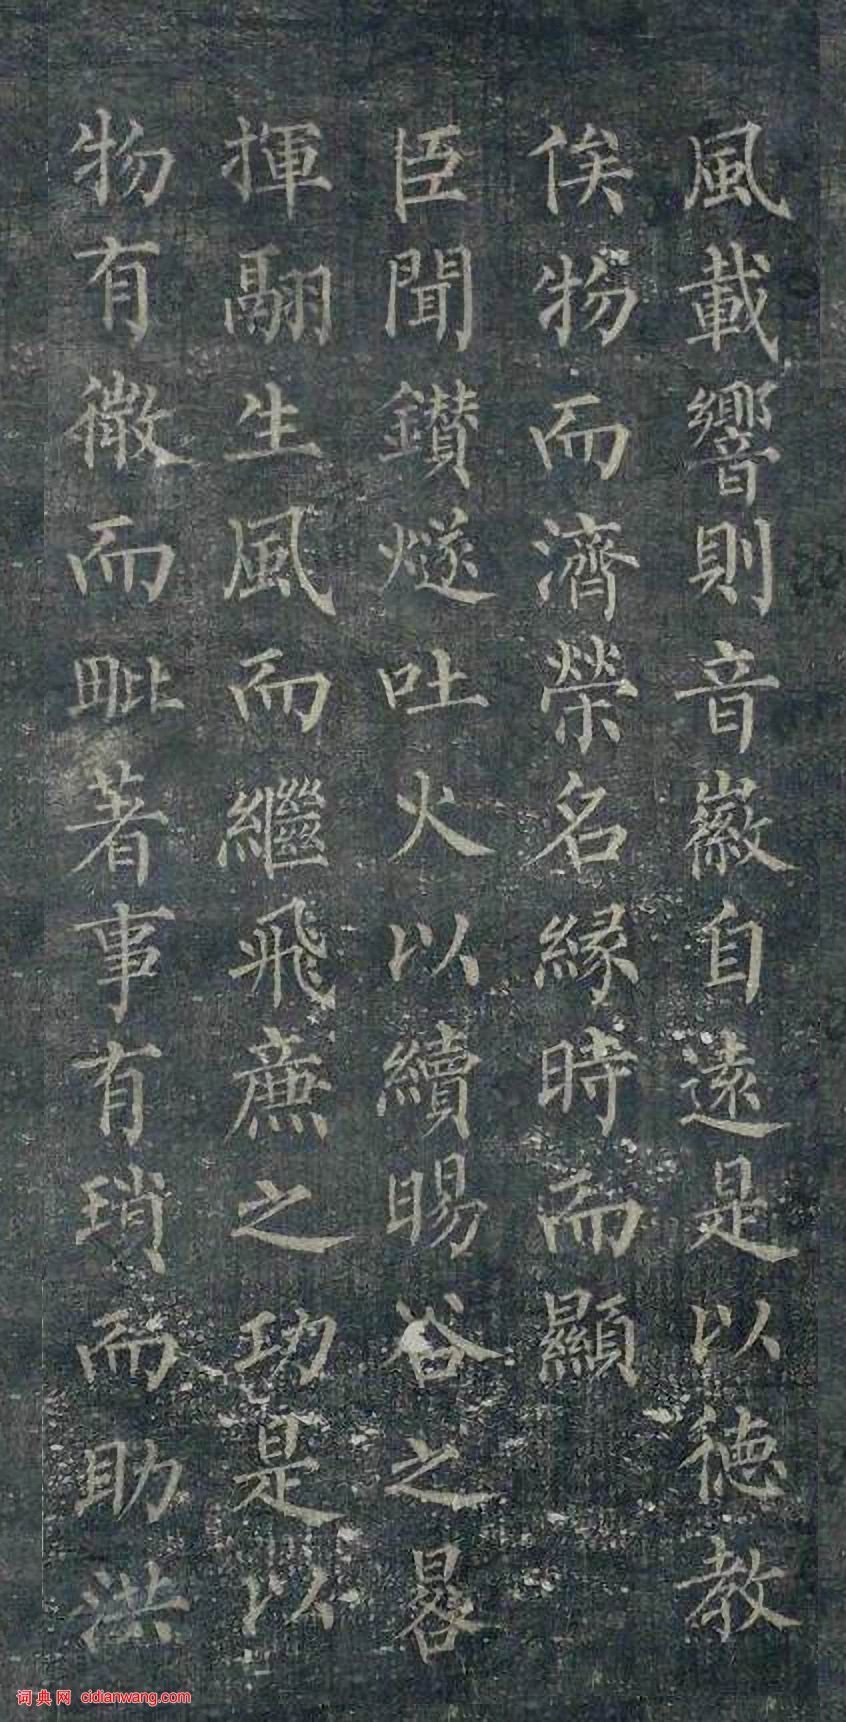 風載響則音徽自遠是以徳教
俟物而濟榮名縁時而顯
臣聞鑚燧吐火以續暘谷之晷
揮翮生風而繼飛廉之功是以
物有微而毗著事有瑣而助洪
词典网 cidianwang.com